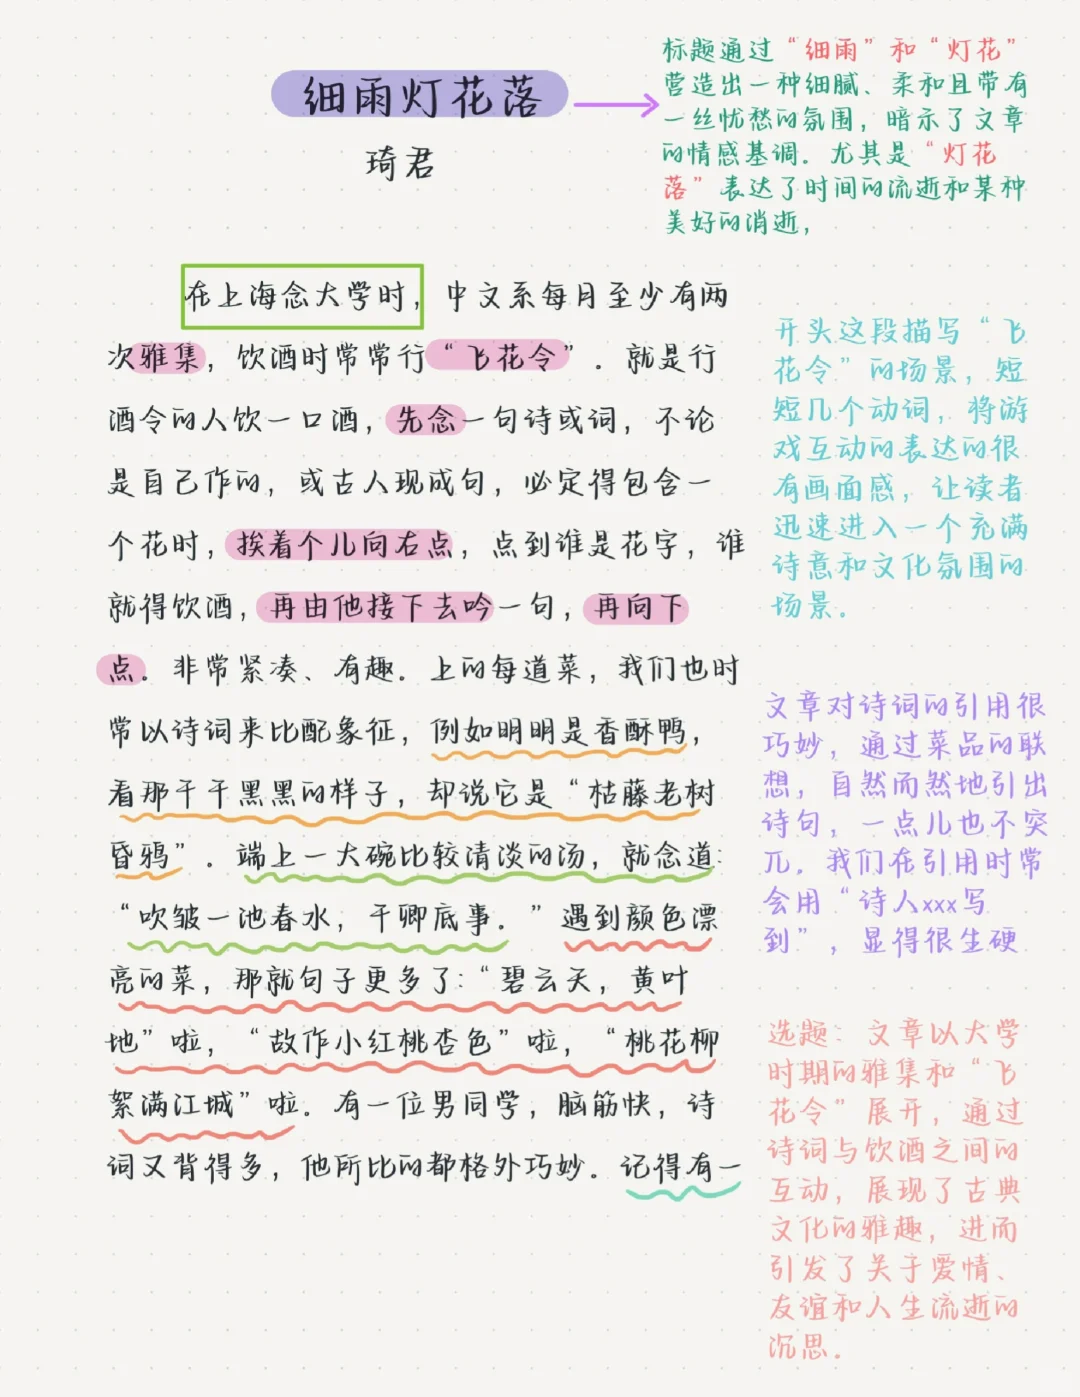 细雨灯花落
琦君
标题通过“细雨”和“灯花”
营造出一种细腻、柔和且带有
一丝忧愁的氛围，暗示了文章
的情感基调．尤其是“灯花
落”表达了时间的流逝和某种
美好的消逝，
在上海念大学时，中文系每月至少有两
次雅集，饮酒时常常行“飞花令”．就是行
酒令的人饮一口酒，先念一句诗或词，不论
是自己作的，或古人现成句，必定得包含一
个花时，挨着个儿向右点，点到谁是花字，谁
就得饮酒，再由他接下去吟一句，再向下
点．非常紧凑、有趣．上的每道菜，我们也时
常以诗词来比配象征，例如明明是香酥鸭，
看那干干黑黑的样子，却说它是“枯藤老树
昏鸦”．端上一大碗比较清淡的汤，就念道：
“吹皱一池春水，干卿底事．”遇到颜色漂
亮的菜，那就句子更多了：“碧云天，黄叶
地”啦，“故作小红桃杏色”啦，“桃花柳
絮满江城”啦．有一位男同学，脑筋快，诗
词又背得多，他所比的都格外巧妙．记得有一
开头这段描写“飞
花令”的场景，短
短几个动词，将游
戏互动的表达的很
有画面感，让读者
迅速进入一个充满
诗意和文化氛围的
场景．
文章对诗词的引用很
巧妙，通过菜品的联
想，自然而然地引出
诗句，一点儿也不突
兀．我们在引用时常
会用“诗人xxx写
到”，显得很生硬
选题：文章以大学
时期的雅集和“飞
花令”展开，通过
诗词与饮酒之间的
互动，展现了古典
文化的雅趣，进而
引发了关于爱情、
友谊和人生流逝的
沉思．